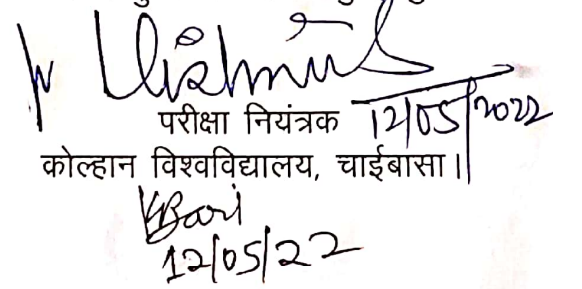 परीक्षा नियंत्रक 12/05/2022
कोल्हान विश्वविद्यालय, चाईबासा।
KBari
12/05/22